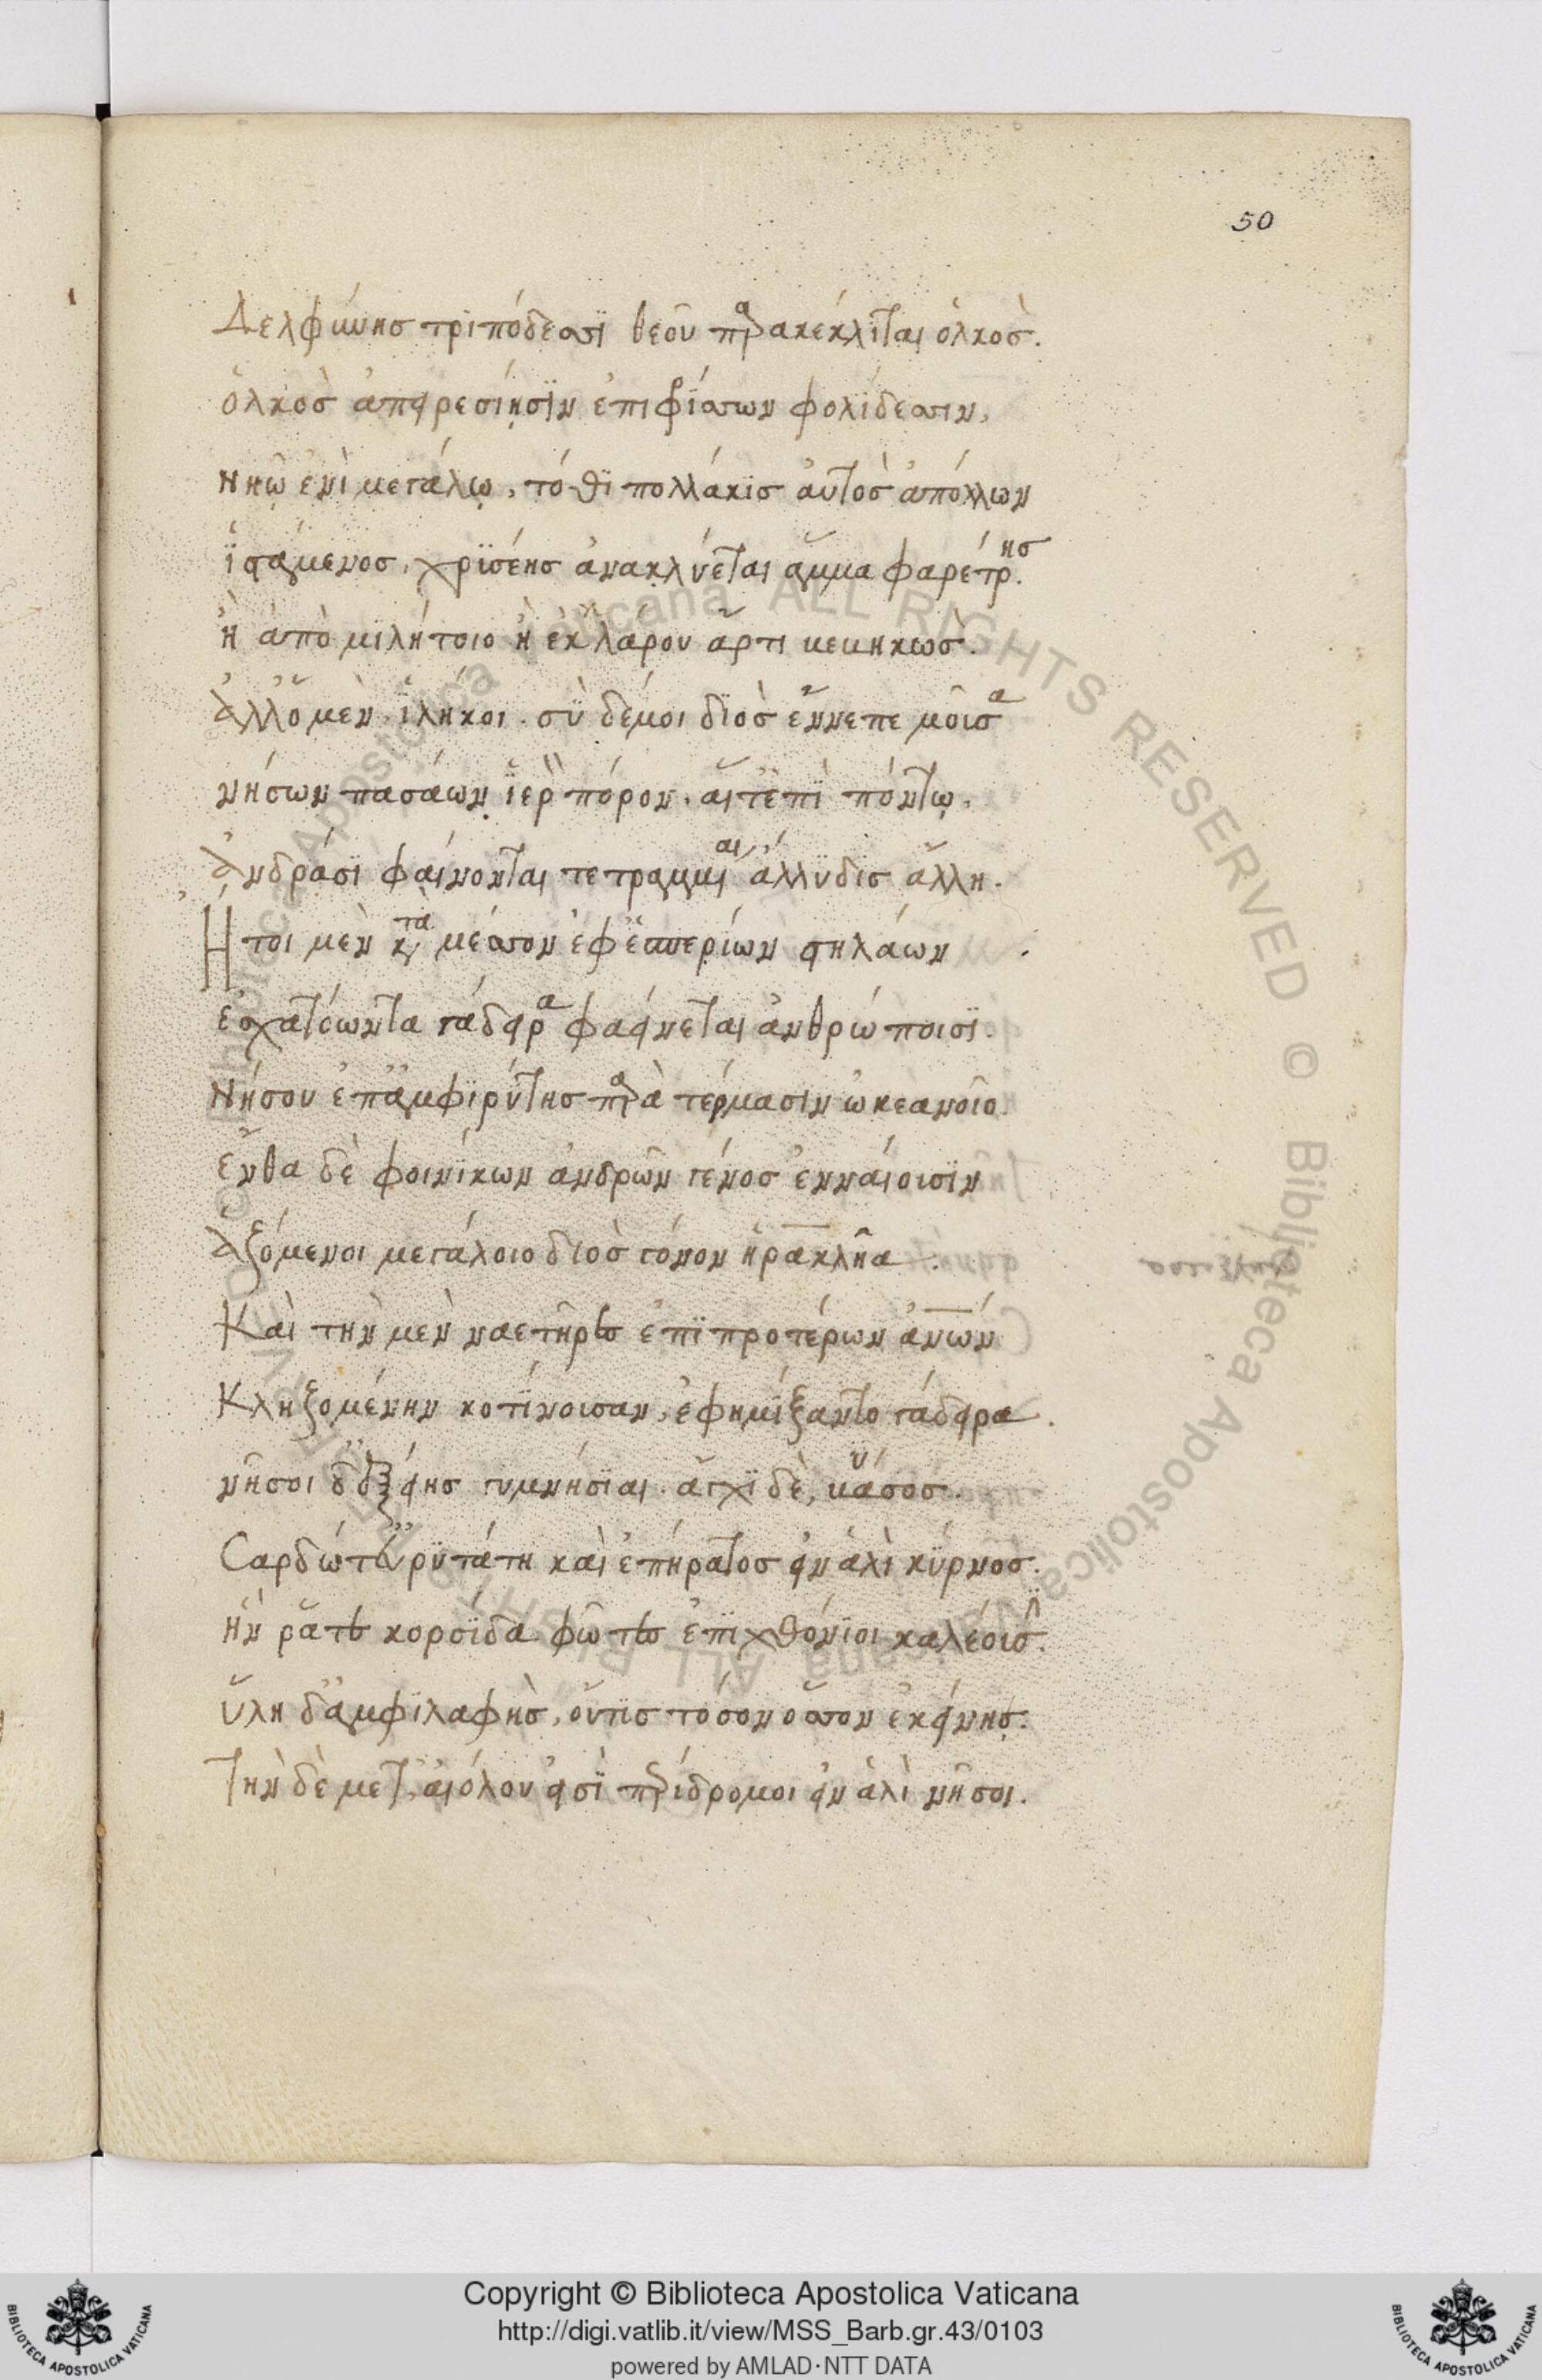 50
Δελφύνησ τριπόδεσσϊ θεοῦ παρακέκλιται ὁλκὸσ.
ὁλκὸσ ἀπειρεσίῃσϊν ἐπιφρίσσων φολίδεσσιν,
νηῷ ἐνὶ μεγάλῳ, τόθι πολλάκισ αὐτὸσ ἀπόλλων
ἱστάμενοσ, χρϊσέησ ἀνακλύεται ἅμμα φαρέτρησ.
ἢ ἀπὸ μιλήτοιο ἢ ἐκ κλάρου ἄρτι κεκηκὼσ.
Ἀλλ' ὃ μὲν ἱλήκοι. σὺ δέ μοι διὸσ ἔννεπε μοῦσα
νήσων πασάων ἱερὸν πόρον, αἵ τ' ἐπὶ πόντῳ,
Ἀνδράσϊ φαίνονται τετραμμέναι ἄλλυδισ ἄλλη.
Ἤτοι μὲν κατὰ μέσσον ἐφ' ἑσπερίων στηλάων
ἐσχατόωντα γάδειρα φαείνεται ἀνθρώποισϊ.
Νήσου ἐπ' ἀμφιρύτησ παρὰ τέρμασιν ὠκεανοῖο.
ἔνθα δὲ φοινίκων ἀνδρῶν γένοσ ἐνναίοισϊν
Ἀζόμενοι μεγάλοιο διὸσ γόνον ἡρακλῆα.
Καὶ τὴν μὲν ναετῆρεσ ἐπὶ προτέρων ἀνῶν
Κληζομένην κοτίνοισαν, ἐφημίξαντο γάδειρα.
νῆσοι δ' ἑξείησ γυμνήσϊαι. ἄγχϊ δὲ, βύσσοσ.
Σαρδώ τ' εὐρυτάτη καὶ ἐπήρατοσ εἰν ἁλὶ κύρνοσ.
ἥν ῥά τε κορσίδα φῶτεσ ἐπιχθόνϊοι καλέοισιν.
ὕλη δ' ἀμφιλαφὴσ, οὔτισ τόσον ὅσσον ἐκείνησ.
Τὴν δὲ μετ', αἰόλου εἰσὶ περίδρομοι εἰν ἁλὶ νῆσοι.
Copyright © Biblioteca Apostolica Vaticana
http://digi.vatlib.it/view/MSS_Barb.gr.43/0103
powered by AMLAD·NTT DATA